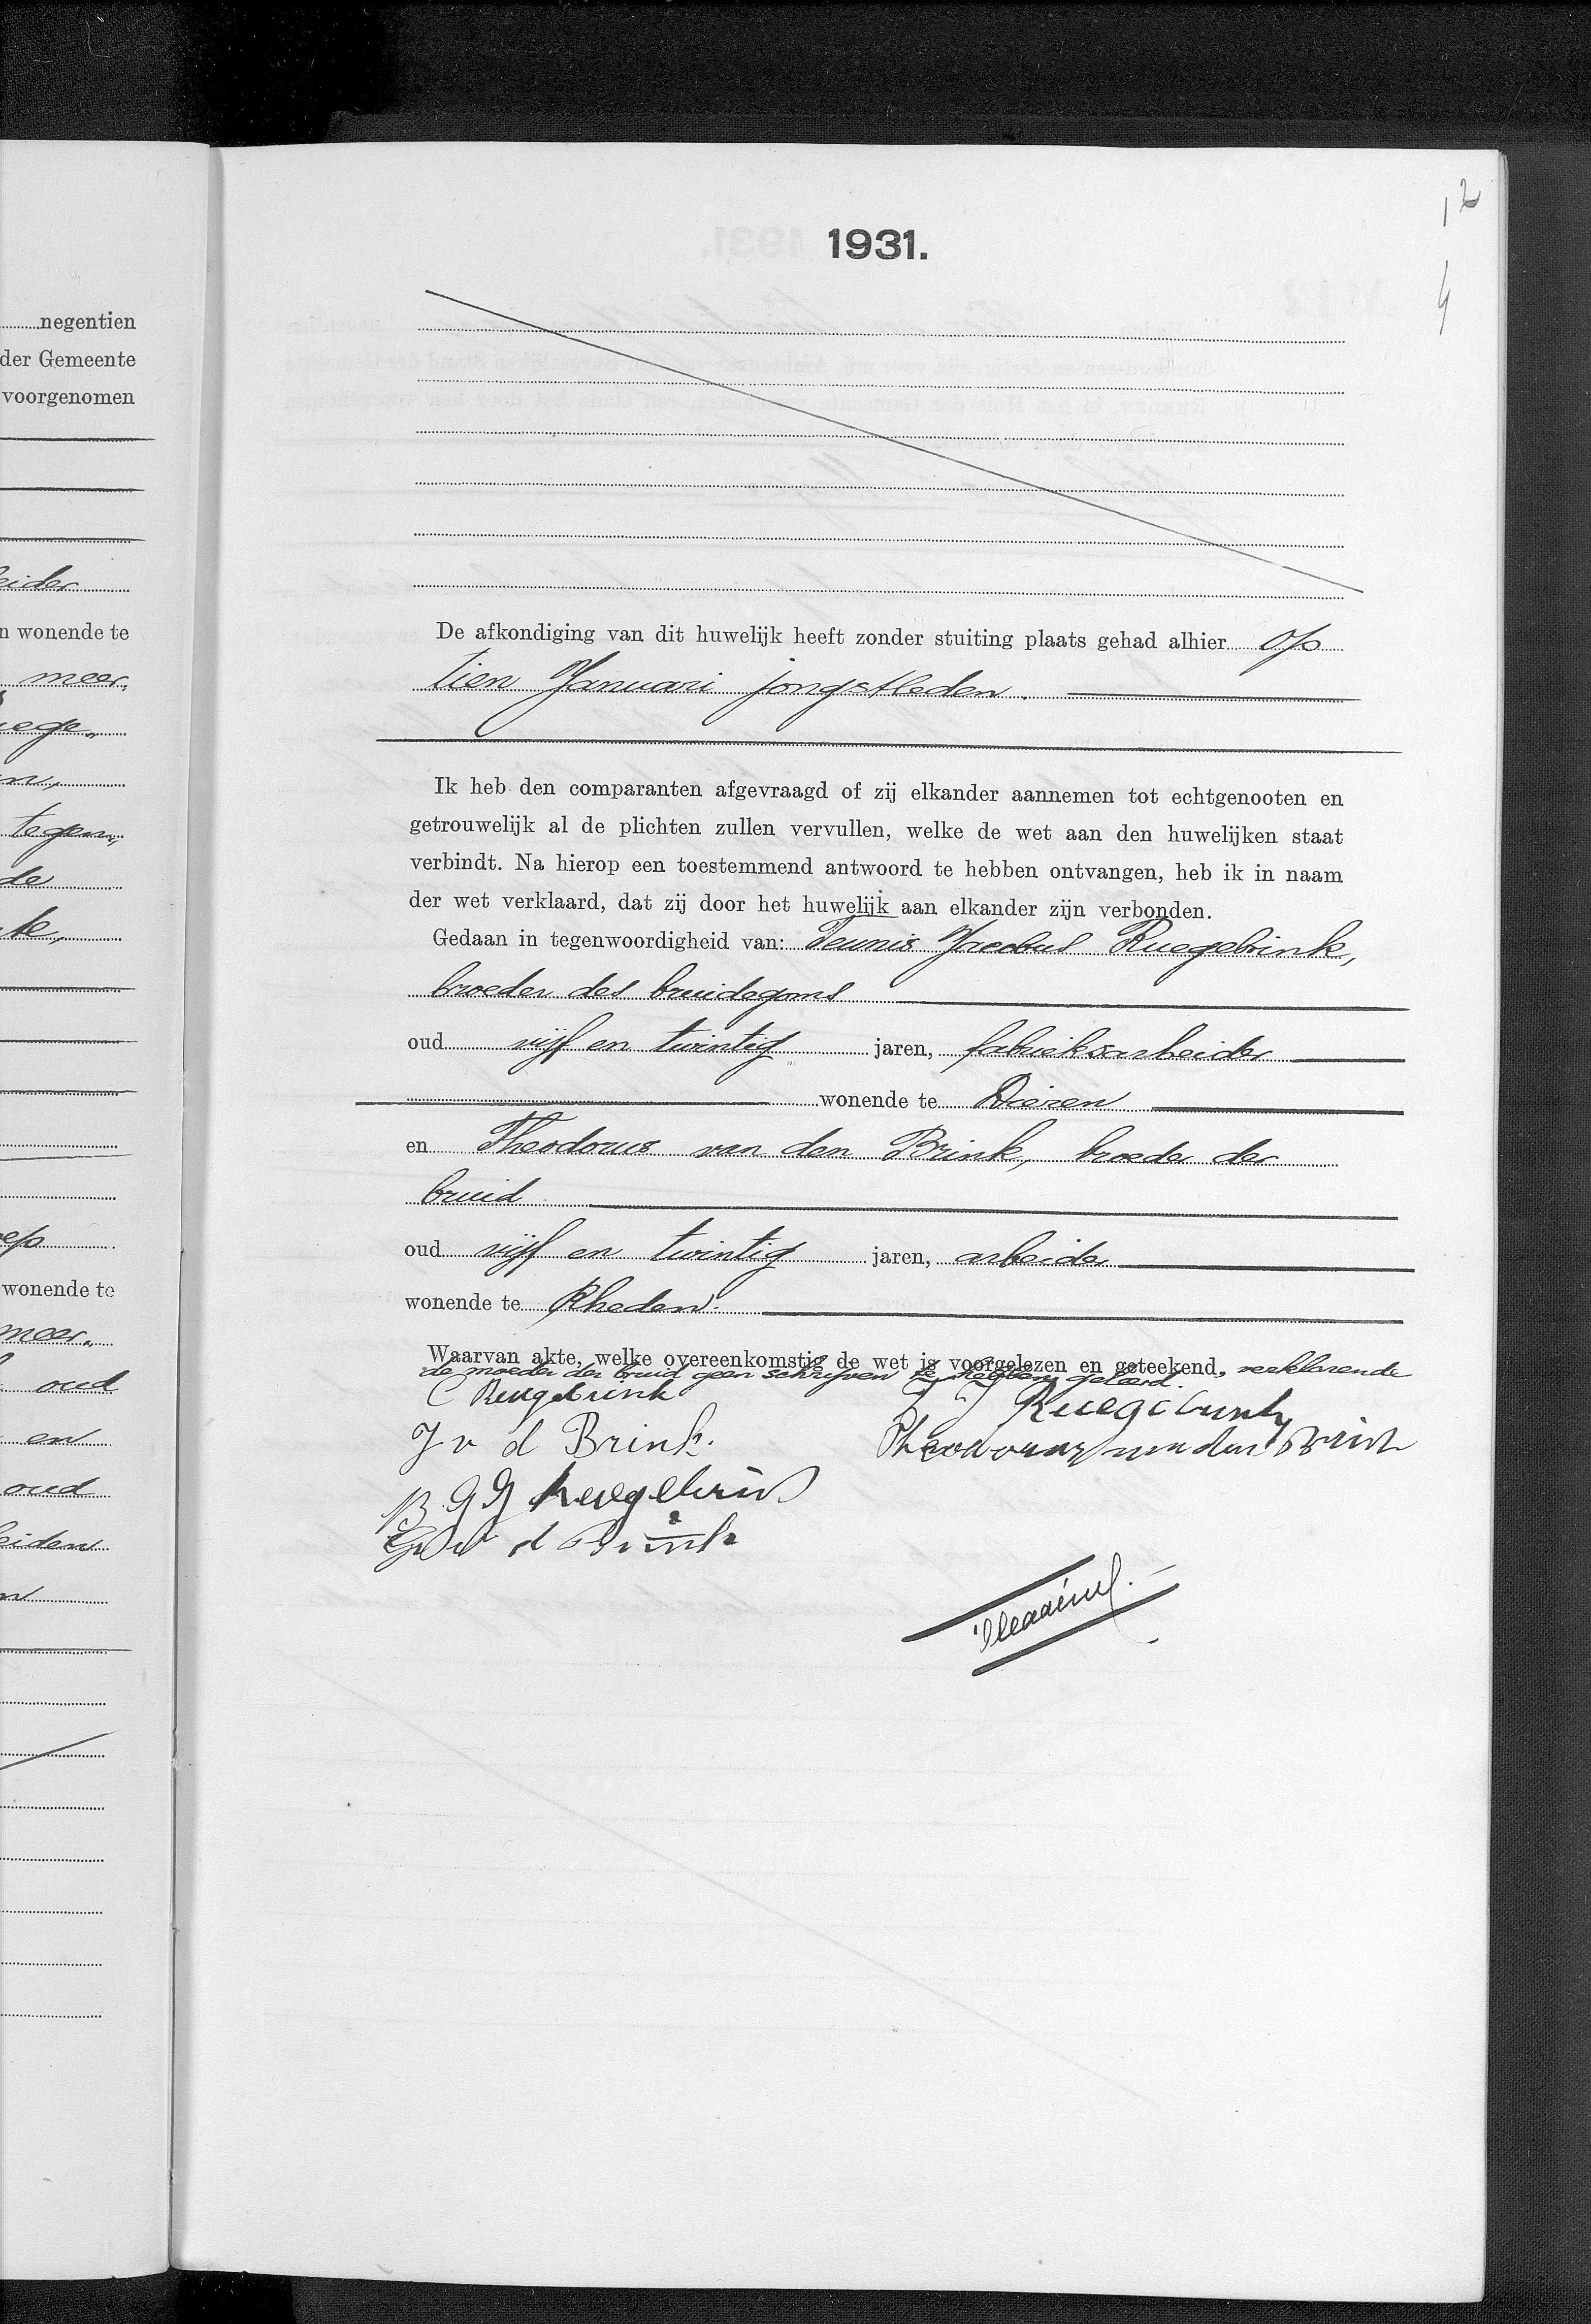 12
1931.
4
negentien
der Gemeente
voorgenomen
eider
n wonende te
meer,
ege,,
n,
tegen,,
de
k,
ep
wonende te
meer,,
oud
en
oud
eiden
n
De afkondiging van dit huwelijk heeft zonder stuiting plaats gehad alhier op
tien Januari jongstleden.
Ik heb den comparanten afgevraagd of zij elkander aannemen tot echtgenooten en
getrouwelijk al de plichten zullen vervullen, welke de wet aan den huwelijken staat
verbindt. Na hierop een toestemmend antwoord te hebben ontvangen, heb ik in naam
der wet verklaard, dat zij door het huwelijk aan elkander zijn verbonden.
Gedaan in tegenwoordigheid van: Teunis Jacobus Ruegebrink,
broeder des bruidegoms
oud vijf en twintig jaren, fabrieksarbeider
wonende te Dieren
en Theodorus van den Brink, broeder der
bruid
oud vijf en twintig jaren, arbeider
wonende te Rheden.
Waarvan akte, welke overeenkomstig de wet is voorgelezen en geteekend, verklarende
de moeder der bruid geen schrijven te hebben geleerd.
C Ruegebrink
T J Ruegebrink
J v d Brink.
Theodorus van den Brink
B G J Ruegebrink
G v d Brink